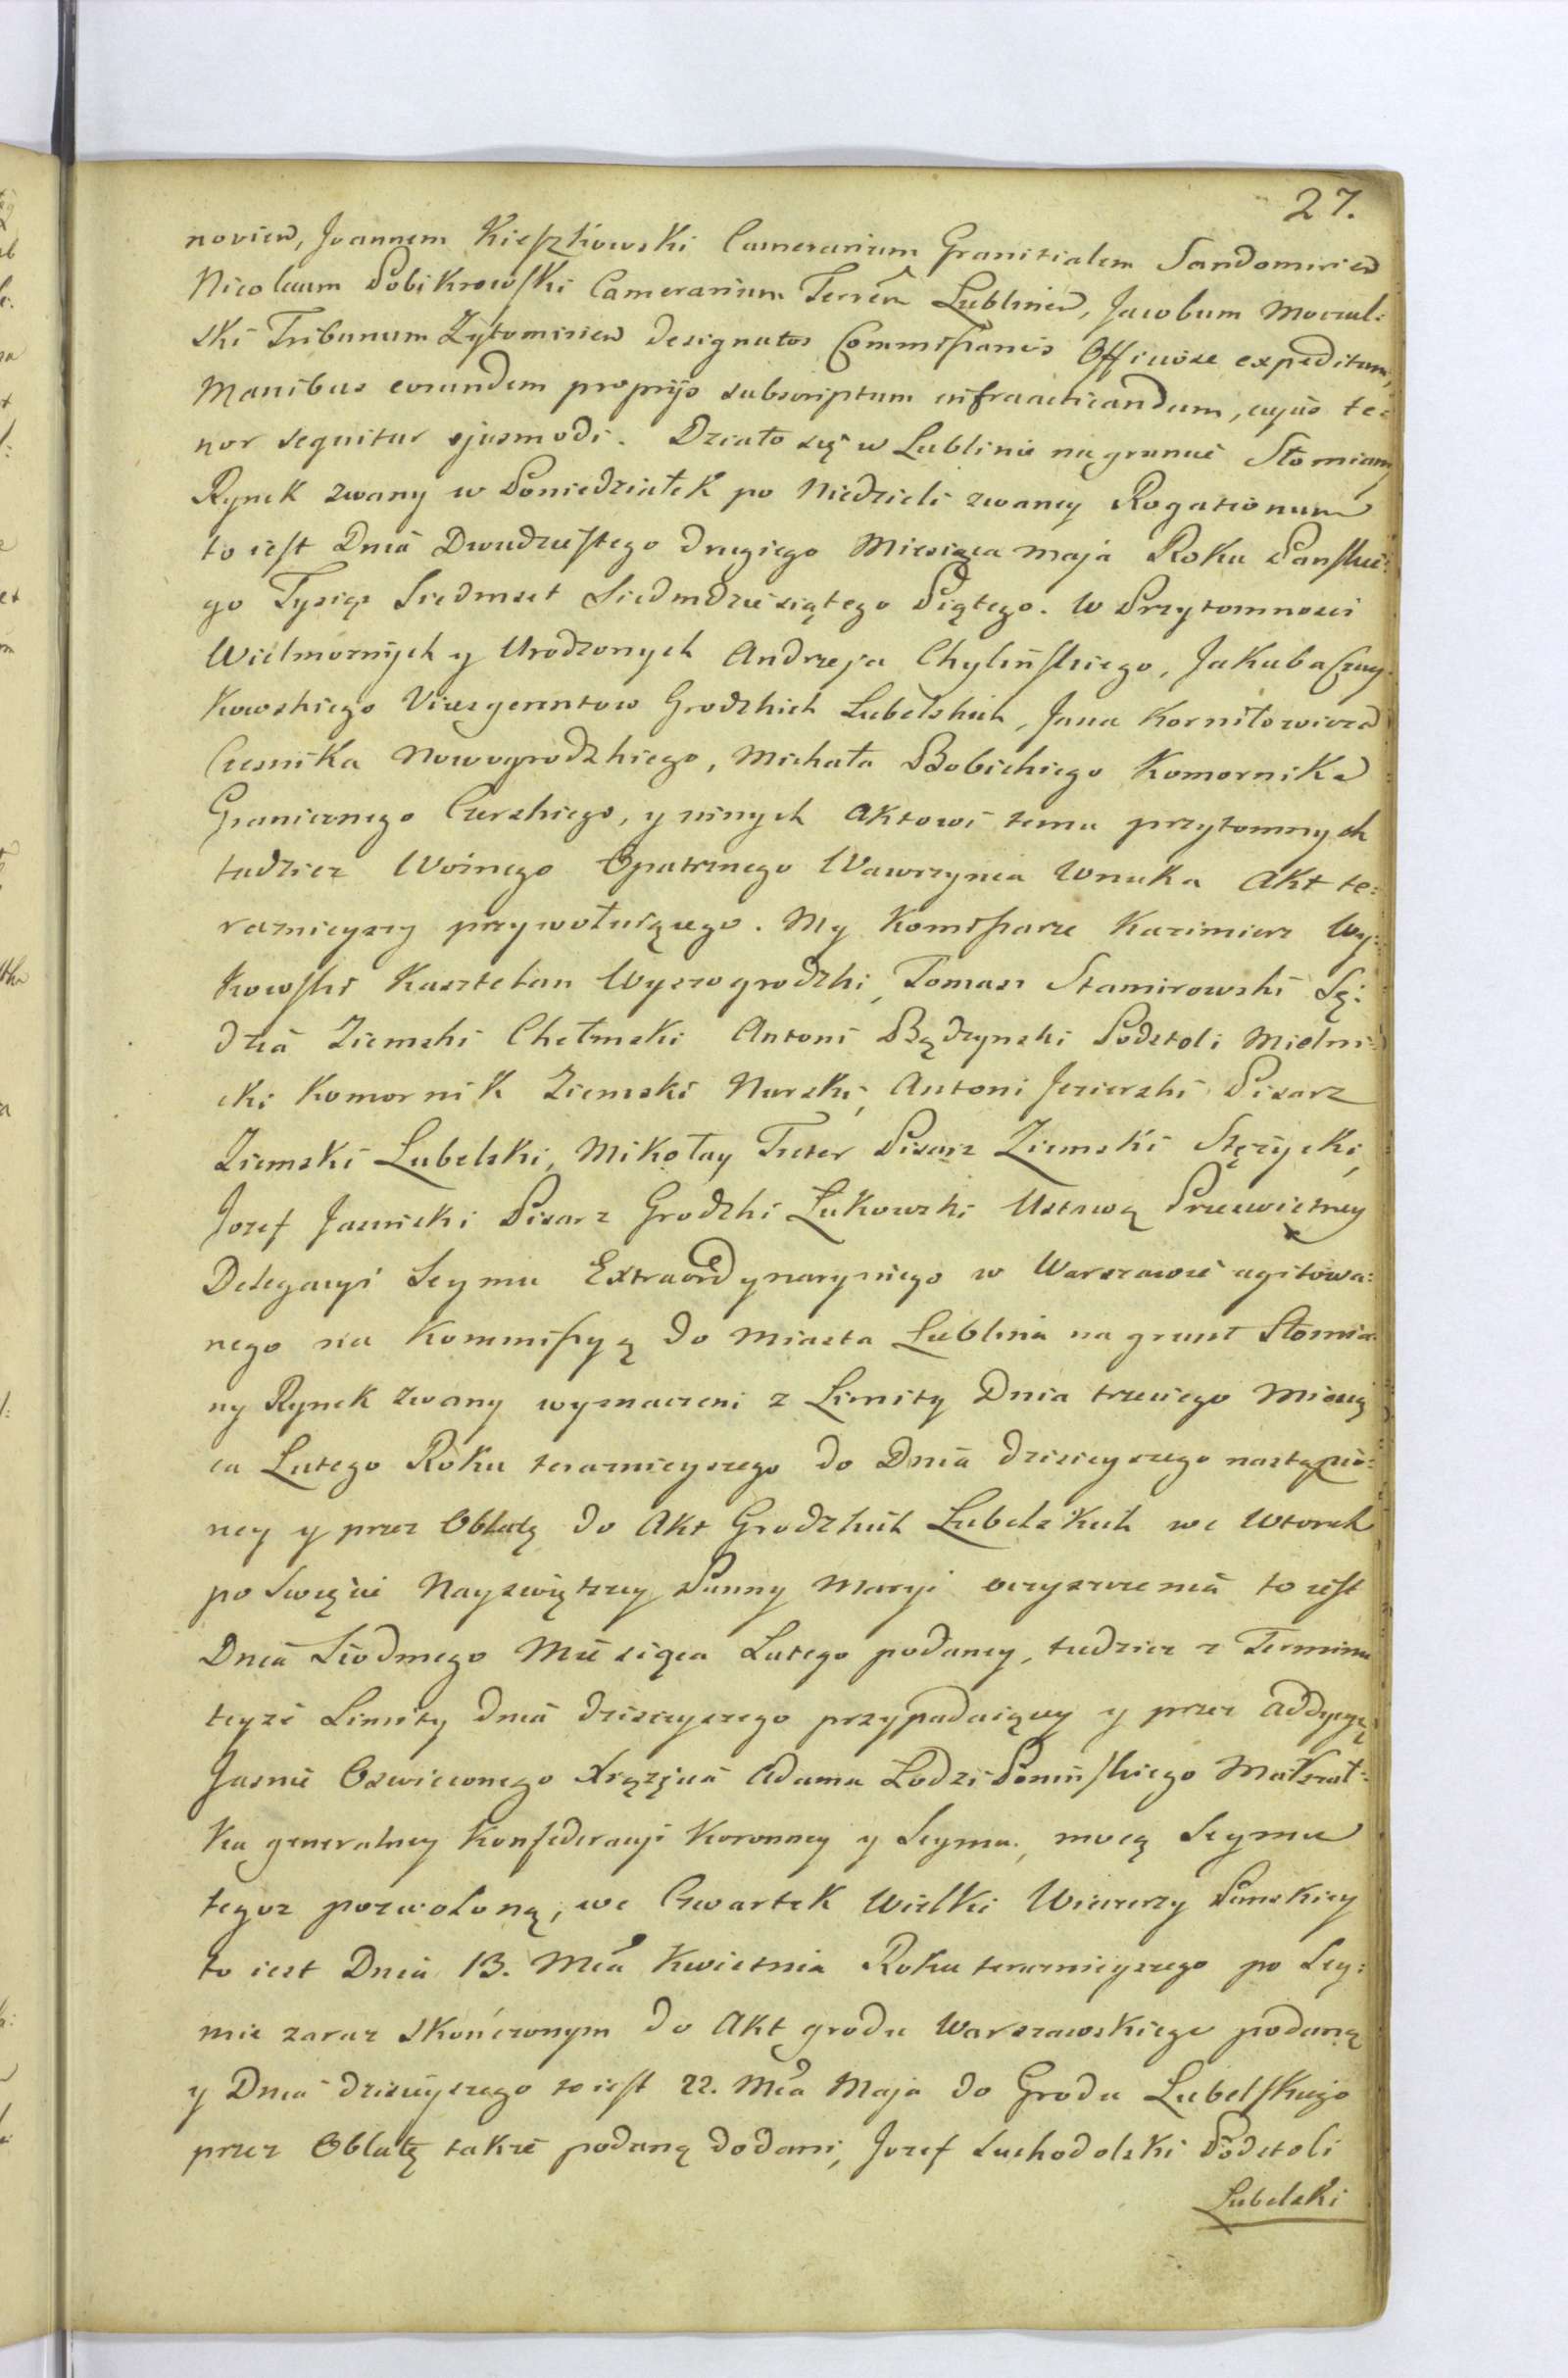 27.
novien, Joannem Kieszkowski Camerarium Granitialem Sandomirien
Nicolaum Dobikrowski Camerarium Terrem Lublinen, Jacobum Moczul:
ski Tribunum Zytomirien designatos Commissarios Officiose expeditum,
Manibus eorundem proprijs subscriptum infraacticandum, cujus te:
nor sequitur ejusmodi. Działo się w Lublinie na gruncie Słomiany
Rynek zwany w Poniedziałek po Niedzieli zwaney Rogationum
to iest Dnia Dwudziestego drugiego Miesiąca maja Roku Panskie:
go Tysiąc Siedmset Siedmdziesiątego Piątego. W Przytomnosci
Wielmożnych y Urodzonych Andrzeja Chylińskiego, Jakuba Czay
kowskiego Vicesgerentow Grodzkich Lubelskich, Jana Korniłowicza
Czesnika Nowogrodzkiego, Michała Bobickiego Komornika
Granicznego Czerskiego, y innych Aktowi temu przytomnych
tudziez Woinego Opatrznego Wawrzynca Wnuka Akt te:
raznieyszy przywołuiącego. My Kommissarze Kazimierz Wy:
kowski Kasztelan Wyszogrodzki, Tomasz Stamirowski Sę:
dzia Ziemski Chełmski Antoni Bądzynski Podstoli Mielni:
cki Komornik Ziemski Nurski, Antoni Jezierski Pisarz
Ziemski Lubelski, Mikołay Treter Pisarz Ziemski Stężycki,
Jozef Jasinski Pisarz Grodzki Łukowski Ustawą Prześwietney
Delegacyi Seymu Extraordynaryinego w Warszawie agitowa:
nego na Kommissyą do Miasta Lublina na grunt Słomia:
ny Rynek zwany wyznaczeni z Limity Dnia trzeciego Miesią
ca Lutego Roku teraznieyszego do Dnia dzisieyszego nastąpio:
ney y przez Oblatę do Akt Grodzkich Lubelskich we Wtorek
po Swięcie Nayswiętszey Panny Maryi oczyszczenia to iest
Dnia Siodmego Miesiąca Lutego podaney, tudziez z Terminu
teyze Limity dnia dzisieyszego przypadaiącey y przez addycyą
Jasnie Oswieconego Xiążęcia Adama Łodzi Ponińskiego Marszał:
ka generalney Konfederacyi Koronney y Seymu, mocą Seymu
tegoz pozwoloną, we Czwartek Wielki Wieczerzy Panskiey
to iest Dnia 13. Mca Kwietnia Roku teraznieyszego po Sey:
mie zaraz skończonym do Akt grodu Warszawskiego podaną
y Dnia dzisieyszego to iest 22. Mca Maja do Grodu Lubelskiego
przez Oblatę takze podaną dodani, Jozef Suchodolski Podstoli
Lubelski